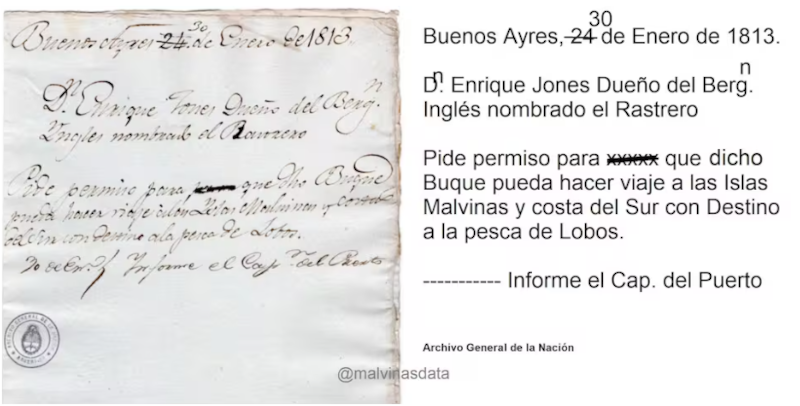 Buenos Ayres 24 30 de Enero de 1813.
Dn. Enrique Jones Dueño del Bergn.
Yngles nombrado el
Pide permiso para que dho Buque
pueda hacer viaje a las Yslas Malvinas y costa
del Sur con destino a la pesca de Lobos.
30 de En.o Informe el Capn. del Puerto
30
Buenos Ayres, 24 de Enero de 1813.
Dn. Enrique Jones Dueño del Bergn.
Inglés nombrado el Rastrero
Pide permiso para xxxxx que dicho
Buque pueda hacer viaje a las Islas
Malvinas y costa del Sur con Destino
a la pesca de Lobos.
----------- Informe el Cap. del Puerto
Archivo General de la Nación
@malvinasdata